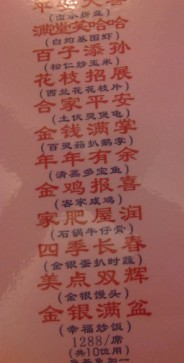 平安大喜
满堂笑哈哈
(白灼基围虾)
百子添孙
(松仁炒玉米)
花枝招展
(西兰花花枝片)
合家平安
(土伏灵煲龟)
金钱满掌
(百灵菇扒鹅掌)
年年有余
(清蒸多宝鱼)
金鸡报喜
(客家咸鸡)
家肥屋润
(石锅牛仔骨)
四季长春
(金银蛋扒时蔬)
美点双辉
(金银馒头)
金银满盆
(幸福炒饭)
1288/席
(共10位用)